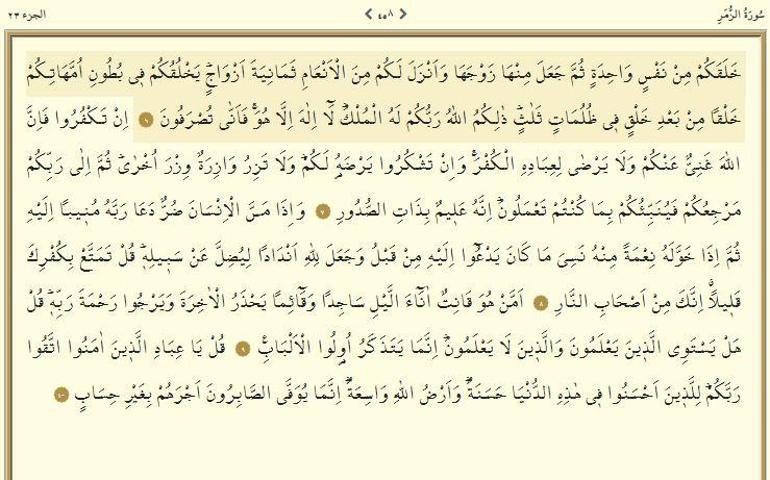 سُورَةُ الزُّمَرِ ٤٥٨ الجزء ٢٣
خَلَقَكُمْ مِنْ نَفْسٍ وَاحِدَةٍ ثُمَّ جَعَلَ مِنْهَا زَوْجَهَا وَاَنْزَلَ لَكُمْ مِنَ الْاَنْعَامِ ثَمَانِيَةَ اَزْوَاجٍۜ يَخْلُقُكُمْ ف۪ي بُطُونِ اُمَّهَاتِكُمْ
خَلْقًا مِنْ بَعْدِ خَلْقٍ ف۪ي ظُلُمَاتٍ ثَلٰثٍۜ ذٰلِكُمُ اللّٰهُ رَبُّكُمْ لَهُ الْمُلْكُۜ لَٓا اِلٰهَ اِلَّا هُوَۚ فَاَنّٰى تُصْرَفُونَ ﴿٦﴾ اِنْ تَكْفُرُوا فَاِنَّ
اللّٰهَ غَنِيٌّ عَنْكُمْ وَلَا يَرْضٰى لِعِبَادِهِ الْكُفْرَۚ وَاِنْ تَشْكُرُوا يَرْضَهُ لَكُمْۜ وَلَا تَزِرُ وَازِرَةٌ وِزْرَ اُخْرٰىۜ ثُمَّ اِلٰى رَبِّكُمْ
مَرْجِعُكُمْ فَيُنَبِّئُكُمْ بِمَا كُنْتُمْ تَعْمَلُونَۜ اِنَّهُ عَل۪يمٌ بِذَاتِ الصُّدُورِ ﴿٧﴾ وَاِذَا مَسَّ الْاِنْسَانَ ضُرٌّ دَعَا رَبَّهُ مُن۪يبًا اِلَيْهِ
ثُمَّ اِذَا خَوَّلَهُ نِعْمَةً مِنْهُ نَسِيَ مَا كَانَ يَدْعُٓوا اِلَيْهِ مِنْ قَبْلُ وَجَعَلَ لِلّٰهِ اَنْدَادًا لِيُضِلَّ عَنْ سَب۪يلِه۪ۜ قُلْ تَمَتَّعْ بِكُفْرِكَ
قَل۪يلًاۗ اِنَّكَ مِنْ اَصْحَابِ النَّارِ ﴿٨﴾ اَمَّنْ هُوَ قَانِتٌ اٰنَٓاءَ الَّيْلِ سَاجِدًا وَقَٓائِمًا يَحْذَرُ الْاٰخِرَةَ وَيَرْجُوا رَحْمَةَ رَبِّه۪ۜ قُلْ
هَلْ يَسْتَوِي الَّذ۪ينَ يَعْلَمُونَ وَالَّذ۪ينَ لَا يَعْلَمُونَۜ اِنَّمَا يَتَذَكَّرُ اُو۬لُوا الْاَلْبَابِ۟ ﴿٩﴾ قُلْ يَا عِبَادِ الَّذ۪ينَ اٰمَنُوا اتَّقُوا
رَبَّكُمْۜ لِلَّذ۪ينَ اَحْسَنُوا ف۪ي هٰذِهِ الدُّنْيَا حَسَنَةٌۜ وَاَرْضُ اللّٰهِ وَاسِعَةٌۜ اِنَّمَا يُوَفَّى الصَّابِرُونَ اَجْرَهُمْ بِغَيْرِ حِسَابٍ ﴿١٠﴾